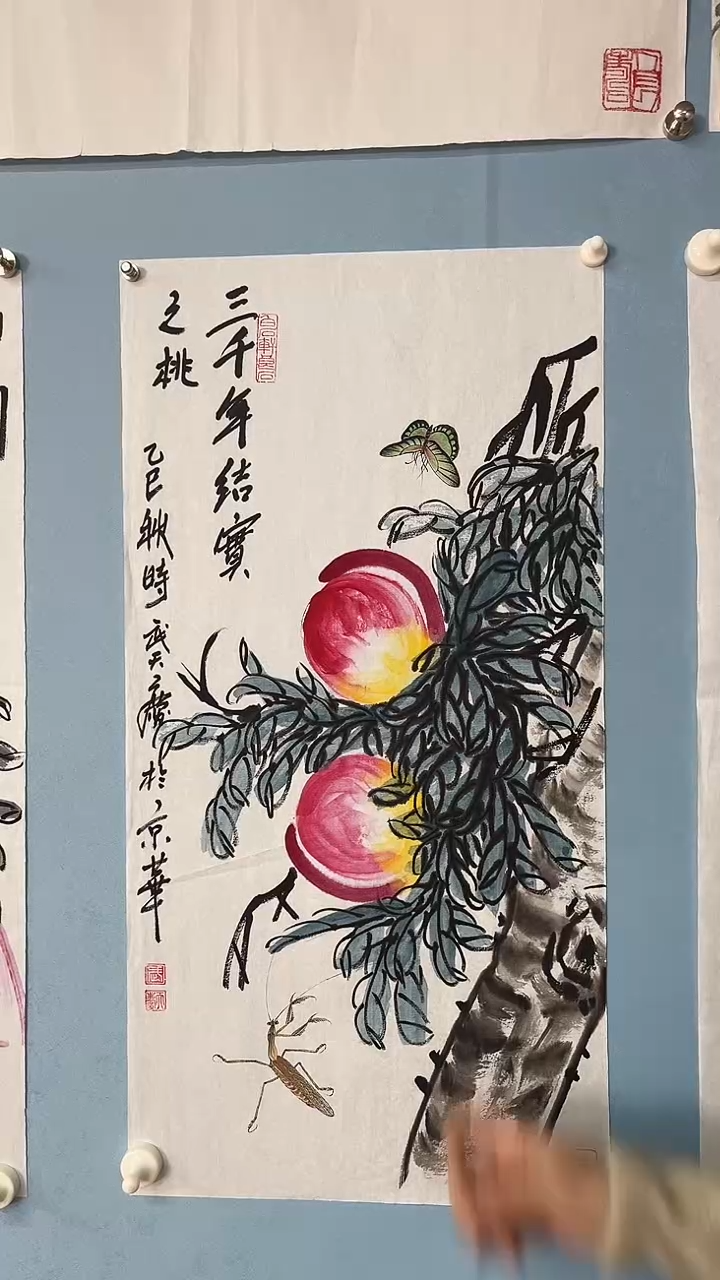 三千年结實
之桃
乙巳秋時於京華